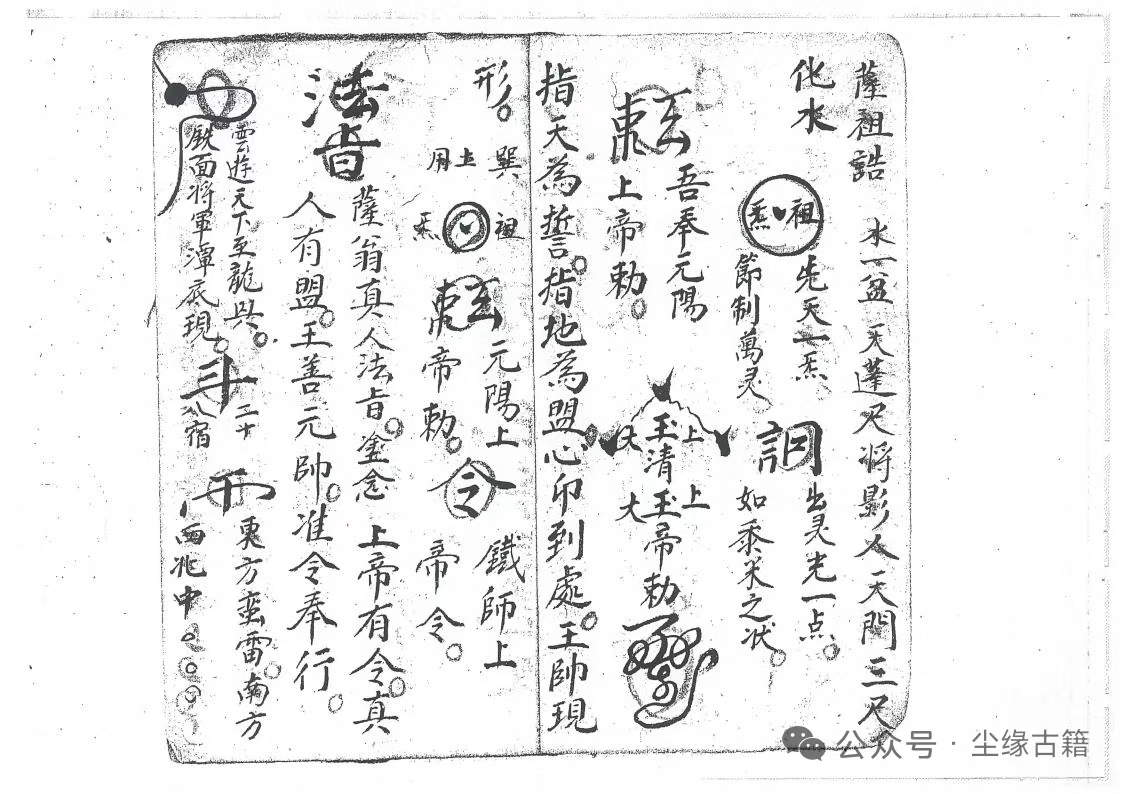 薩祖誥 水一盆 天蓬尺将影入天門三尺
化水
祖炁 先天一炁
節制萬灵
詷 出灵光一点。
如黍米之状。
玄 吾奉元陽
上帝勅。
玉清
上大
玉帝勅
上大
指天為誓。指地為盟心印到處。王帥現
形。 巽
土用
祖炁
玄 元陽上
帝勅。
令 鐵師上
帝令。
薩翁真人法旨。塗念上帝有令。真
法旨
人有盟。王善元帥。准令奉行。
雲遊天下至龍興。
鉄面将軍潭底現。
斗 二十八宿
東方蛮雷。南方
西北中。
公众号 · 尘缘古籍